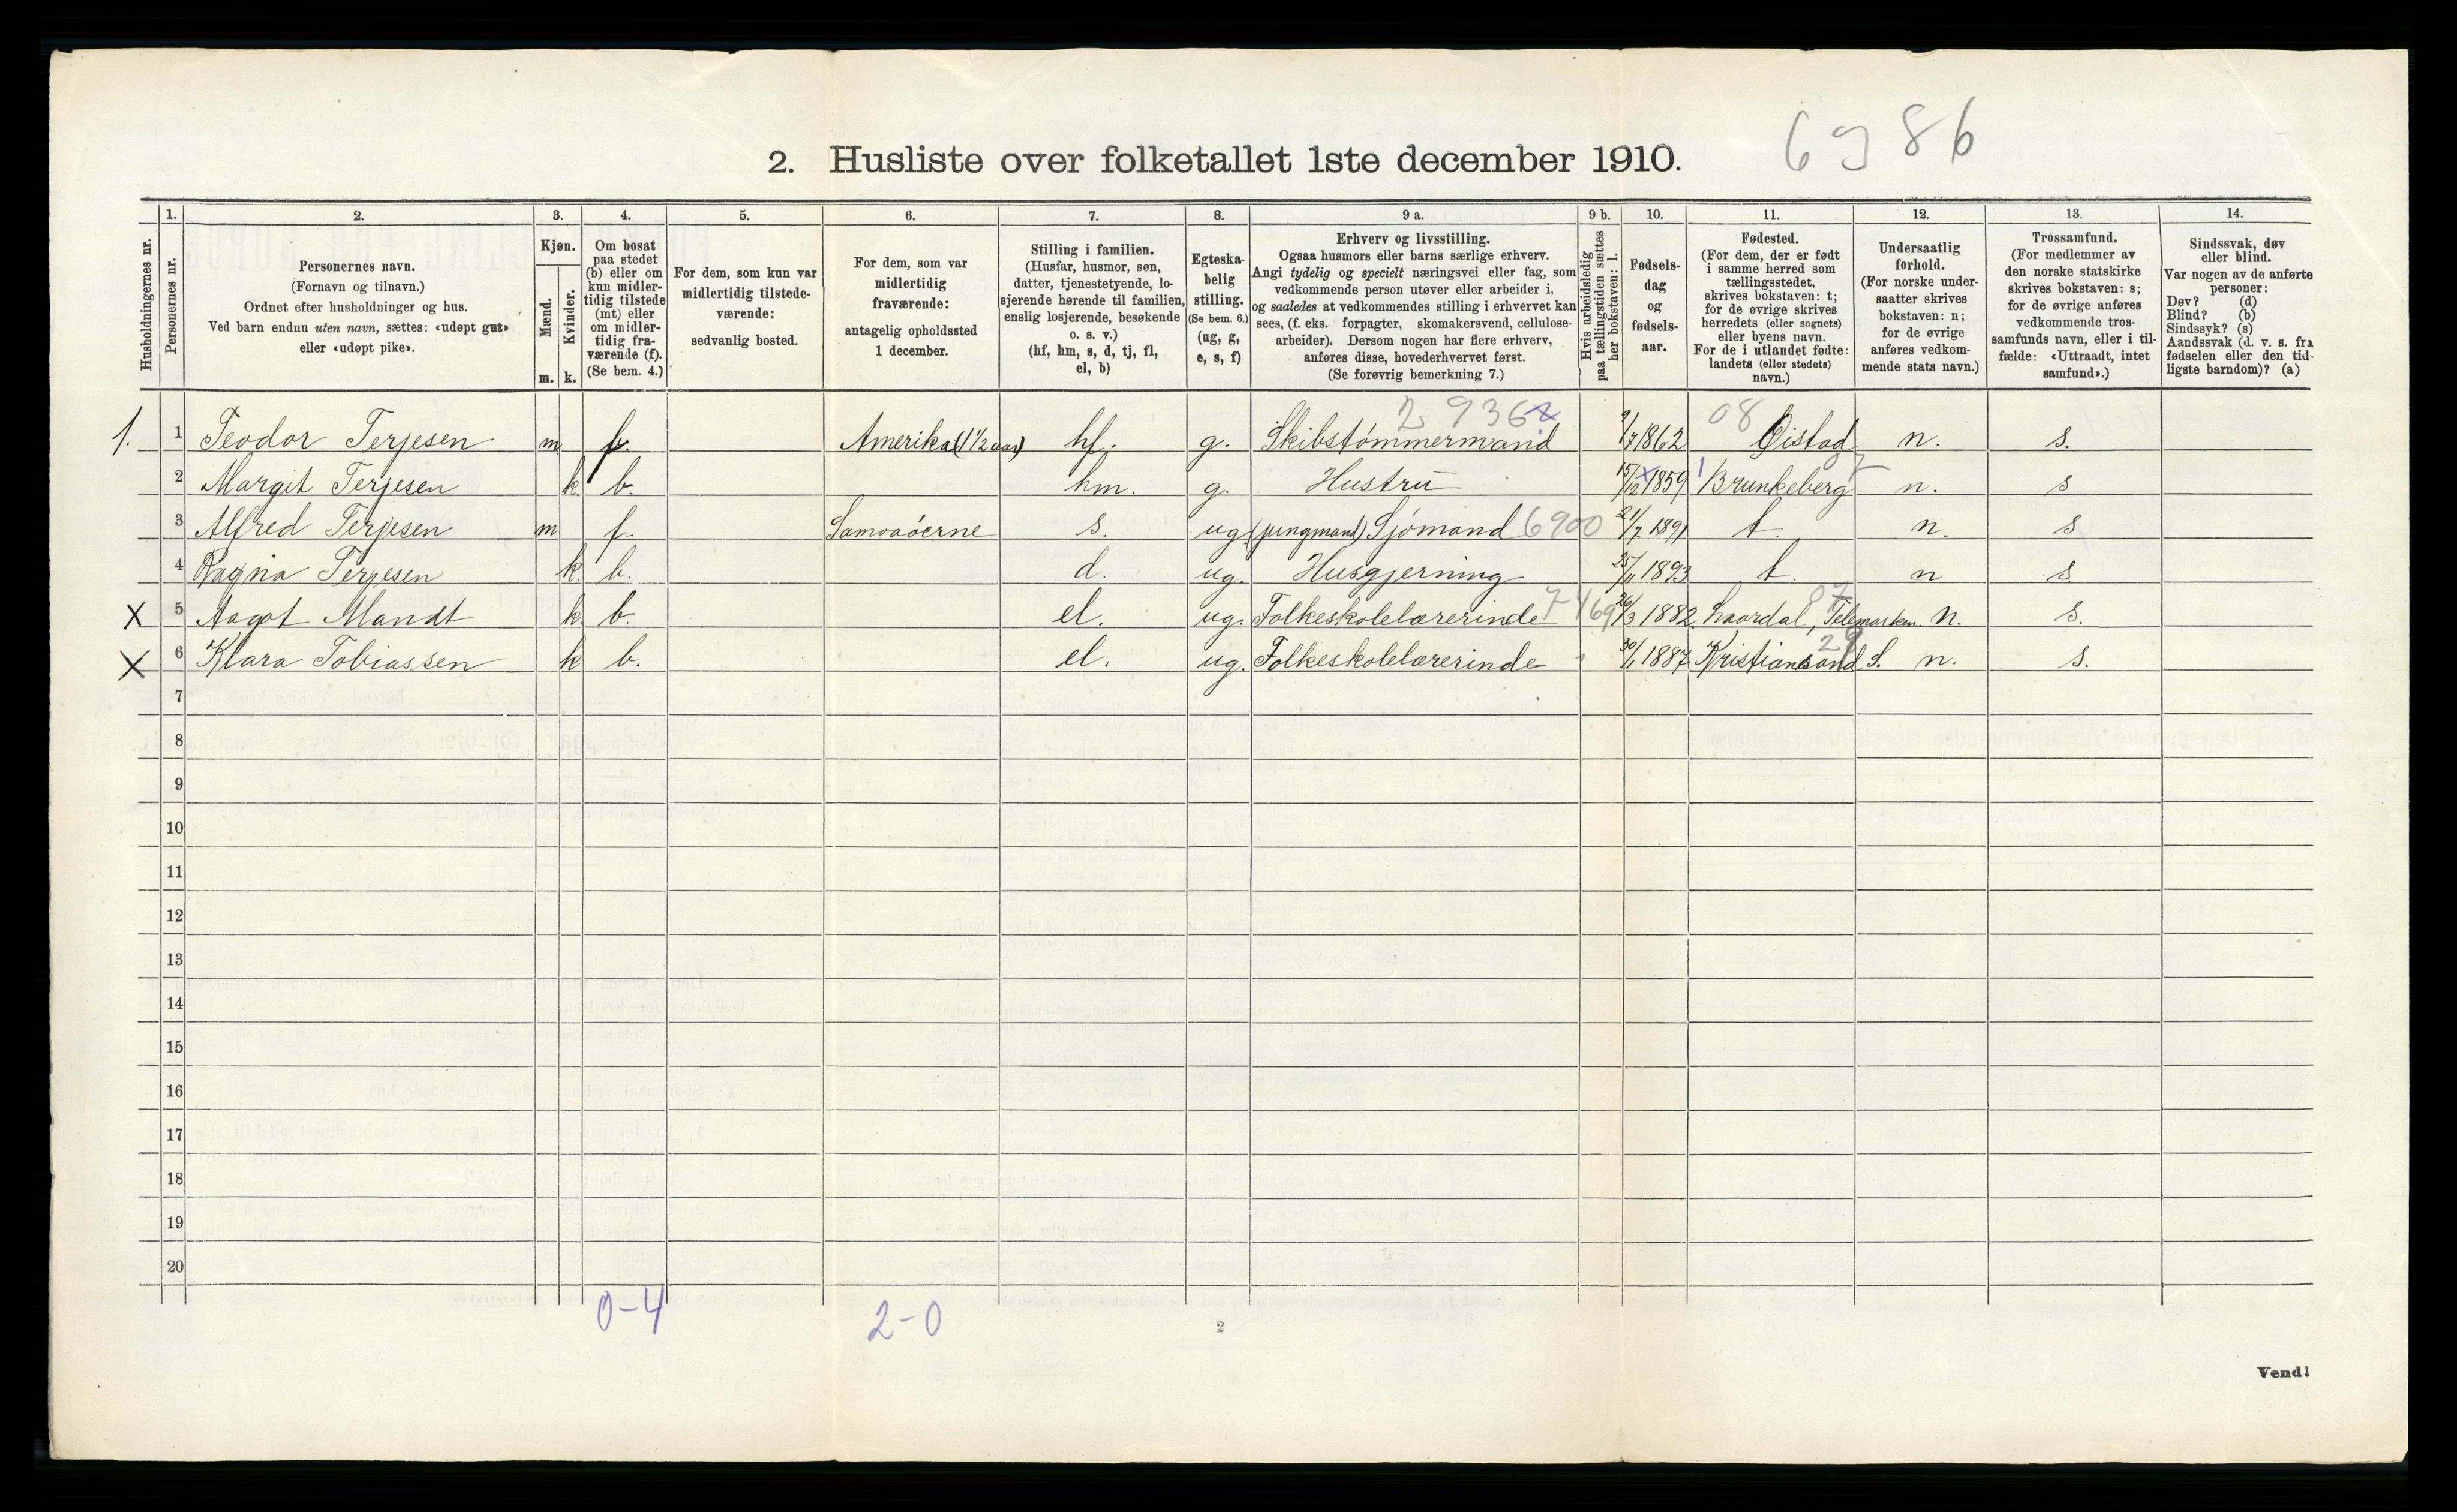 6986
2. Husliste over folketallet 1ste december 1910.
Husholdningernes nr.
1. Personernes nr.
2. Personernes navn. (Fornavn og tilnavn.) Ordnet efter husholdninger og hus. Ved barn endnu uten navn, sættes: «udøpt gut» eller «udøpt pike».
3. Kjøn. Mænd. m. Kvinder. k.
4. Om bosat paa stedet (b) eller om kun midlertidig tilstede (mt) eller om midlertidig fraværende (f). (Se bem. 4.)
5. For dem, som kun var midlertidig tilstedeværende: sedvanlig bosted.
6. For dem, som var midlertidig fraværende: antagelig opholdssted 1 december.
7. Stilling i familien. (Husfar, husmor, søn, datter, tjenestetyende, losjerende hørende til familien, enslig losjerende, besøkende o. s. v.) (hf, hm, s, d, tj, fl, el, b)
8. Egteskabelig stilling. (Se bem. 6.) (ug, g, e, s, f)
9 a. Erhverv og livsstilling. Ogsaa husmors eller barns særlige erhverv. Angi tydelig og specielt næringsvei eller fag, som vedkommende person utøver eller arbeider i, og saaledes at vedkommendes stilling i erhvervet kan sees, (f. eks. forpagter, skomakersvend, cellulosearbeider). Dersom nogen har flere erhverv, anføres disse, hovederhvervet først. (Se forøvrig bemerkning 7.)
9 b. Hvis arbeidsledig paa tællingstiden sættes her bokstaven: l.
10. Fødselsdag og fødselsaar.
11. Fødested. (For dem, der er født i samme herred som tællingsstedet, skrives bokstaven: t; for de øvrige skrives herredets (eller sognets) eller byens navn. For de i utlandet fødte: landets (eller stedets) navn.)
12. Undersaatlig forhold. (For norske undersaatter skrives bokstaven: n; for de øvrige anføres vedkommende stats navn.)
13. Trossamfund. (For medlemmer av den norske statskirke skrives bokstaven: s; for de øvrige anføres vedkommende trossamfunds navn, eller i tilfælde: «Uttraadt, intet samfund».)
14. Sindssvak, døv eller blind. Var nogen av de anførte personer: Døv? (d) Blind? (b) Sindssyk? (s) Aandssvak (d. v. s. fra fødselen eller den tidligste barndom)? (a)
2 936 08
1. 1 Teodor Terjesen m f. Amerika (1 1/2 aar) hf. g. Skibstømmermand 9/7 1862 Øistad n. s.
2 Margit Terjesen k b. hm. g. Hustru 15/12 1859 Brunkeberg n. s
3 Alfred Terjesen m f. Samoaøerne s. ug. (jungmand) Sjømand 6900 21/7 1891 t. n. s
4 Ragna Terjesen k. b. d. ug. Husgjerning 25/11 1893 t. n s
X 5 Aagot Mandt k. b. el. ug. Folkeskolelærerinde 7469 26/3 1882 Laardal, Telemarken n. s.
X 6 Klara Tobiassen k b. el. ug. Folkeskolelærerinde 30/1 1887 Kristiansand S. n. s.
7
8
9
10
11
12
13
14
15
16
17
18
19
20
0-4 2-0
2
Vend!